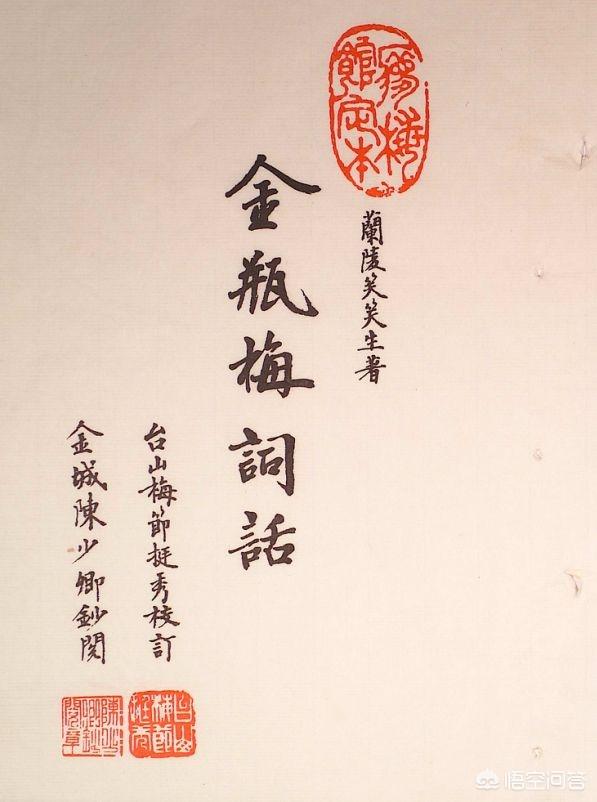 夢梅
館定本
蘭陵笑笑生著
金瓶梅詞話
台山梅節挺秀校訂
金城陳少卿鈔閱
台山
梅節
挺秀
陳少
卿鈔
閱章
悟空问答